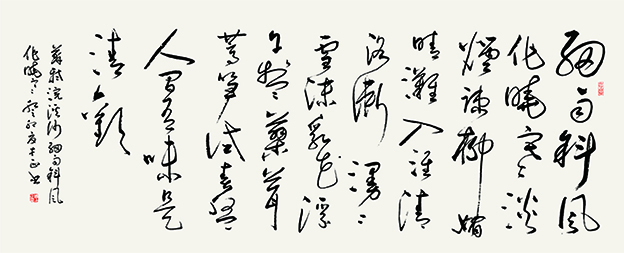 細雨斜風
作曉寒淡
煙疎柳媚
晴灘入淮清
洛漸漫漫
雪沫乳花浮
午盞蓼茸
蒿笋試春盤
人間有味是
清歡
蘇軾浣溪沙細雨斜風
作曉寒